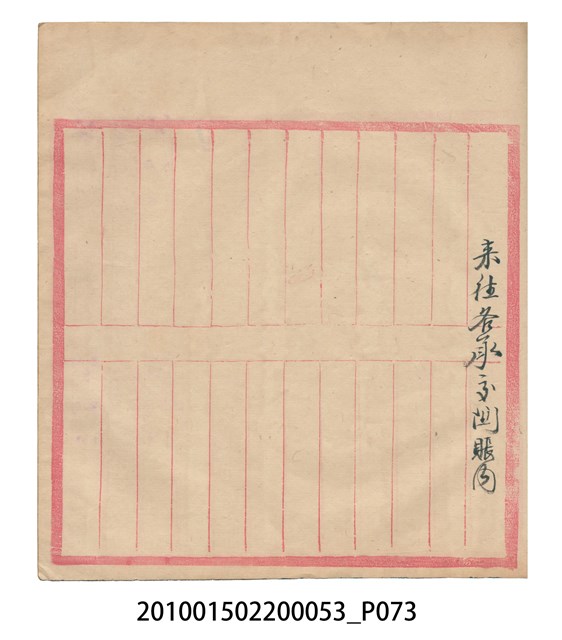 来往各承交関賬内
201001502200053_P073